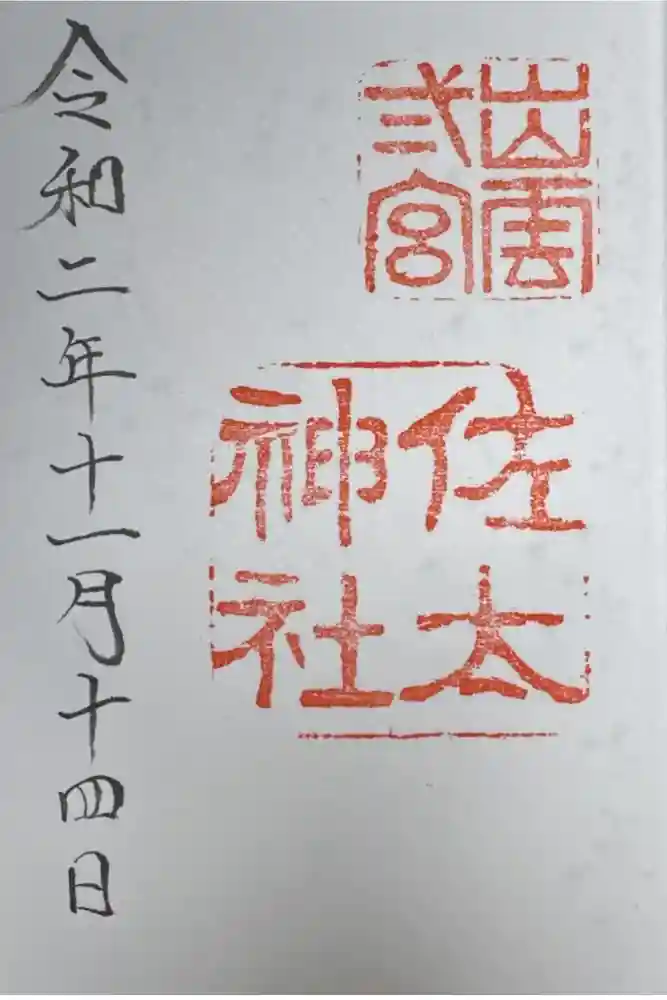 出雲
弍宮
佐太
神社
令和二年十一月十四日